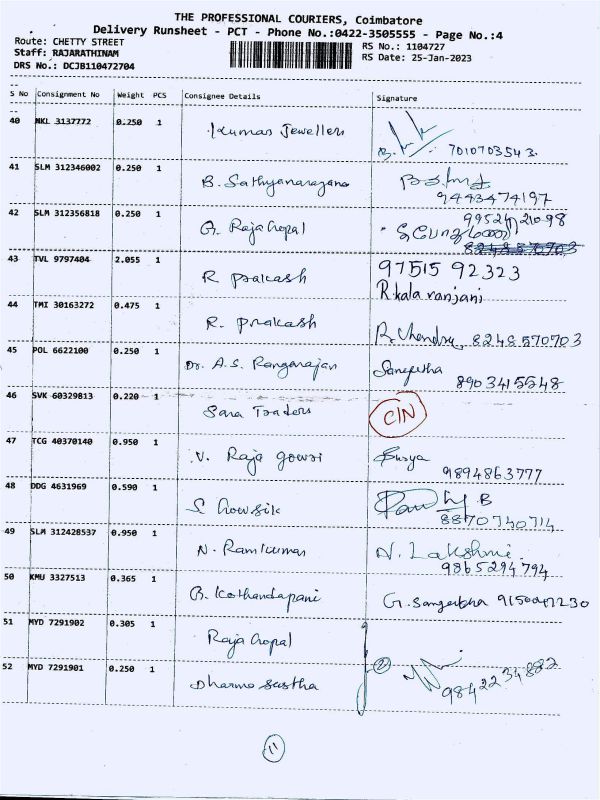 THE PROFESSIONAL COURIERS, Coimbatore
Delivery Runsheet - PCT - Phone No.:0422-3505555 - Page No.:4
Route: CHETTY STREET
RS No.: 1104727
Staff: RAJARATHINAM
RS Date: 25-Jan-2023
DRS No.: DCJB110472704
S No Consignment No Weight PCS Consignee Details Signature
40 NKL 3137772 0.250 1 Kumar Jewellers
7010703543
41 SLM 312346002 0.250 1 B. Sathyanarayana
9443474197
42 SLM 312356818 0.250 1 G. Raja Gopal 99524 21098
8248570703
43 TVL 9797404 2.055 1 R Prakash 97515 92323
R.kala ranjani
44 TMI 30163272 0.475 1 R. Prakash R. Chandra, 8248570703
45 POL 6622100 0.250 1 Dr. A.S. Rangarajan Sangeetha
8903415548
46 SVK 60329813 0.220 1 Sara Traders C/N
47 TCG 40370140 0.950 1 V. Raja gowri Surya
9894863777
48 DDG 4631969 0.590 1 S Chowsik
8870740714
49 SLM 312428537 0.950 1 N. Ramkumar N. Lakshmi.
9865294794
50 KMU 3327513 0.365 1 B. Kothandapani G. Sangeetha 9150047230
51 MYD 7291902 0.305 1 Raja Gopal
52 MYD 7291901 0.250 1 Dharma Sastha 2 9842234882
11